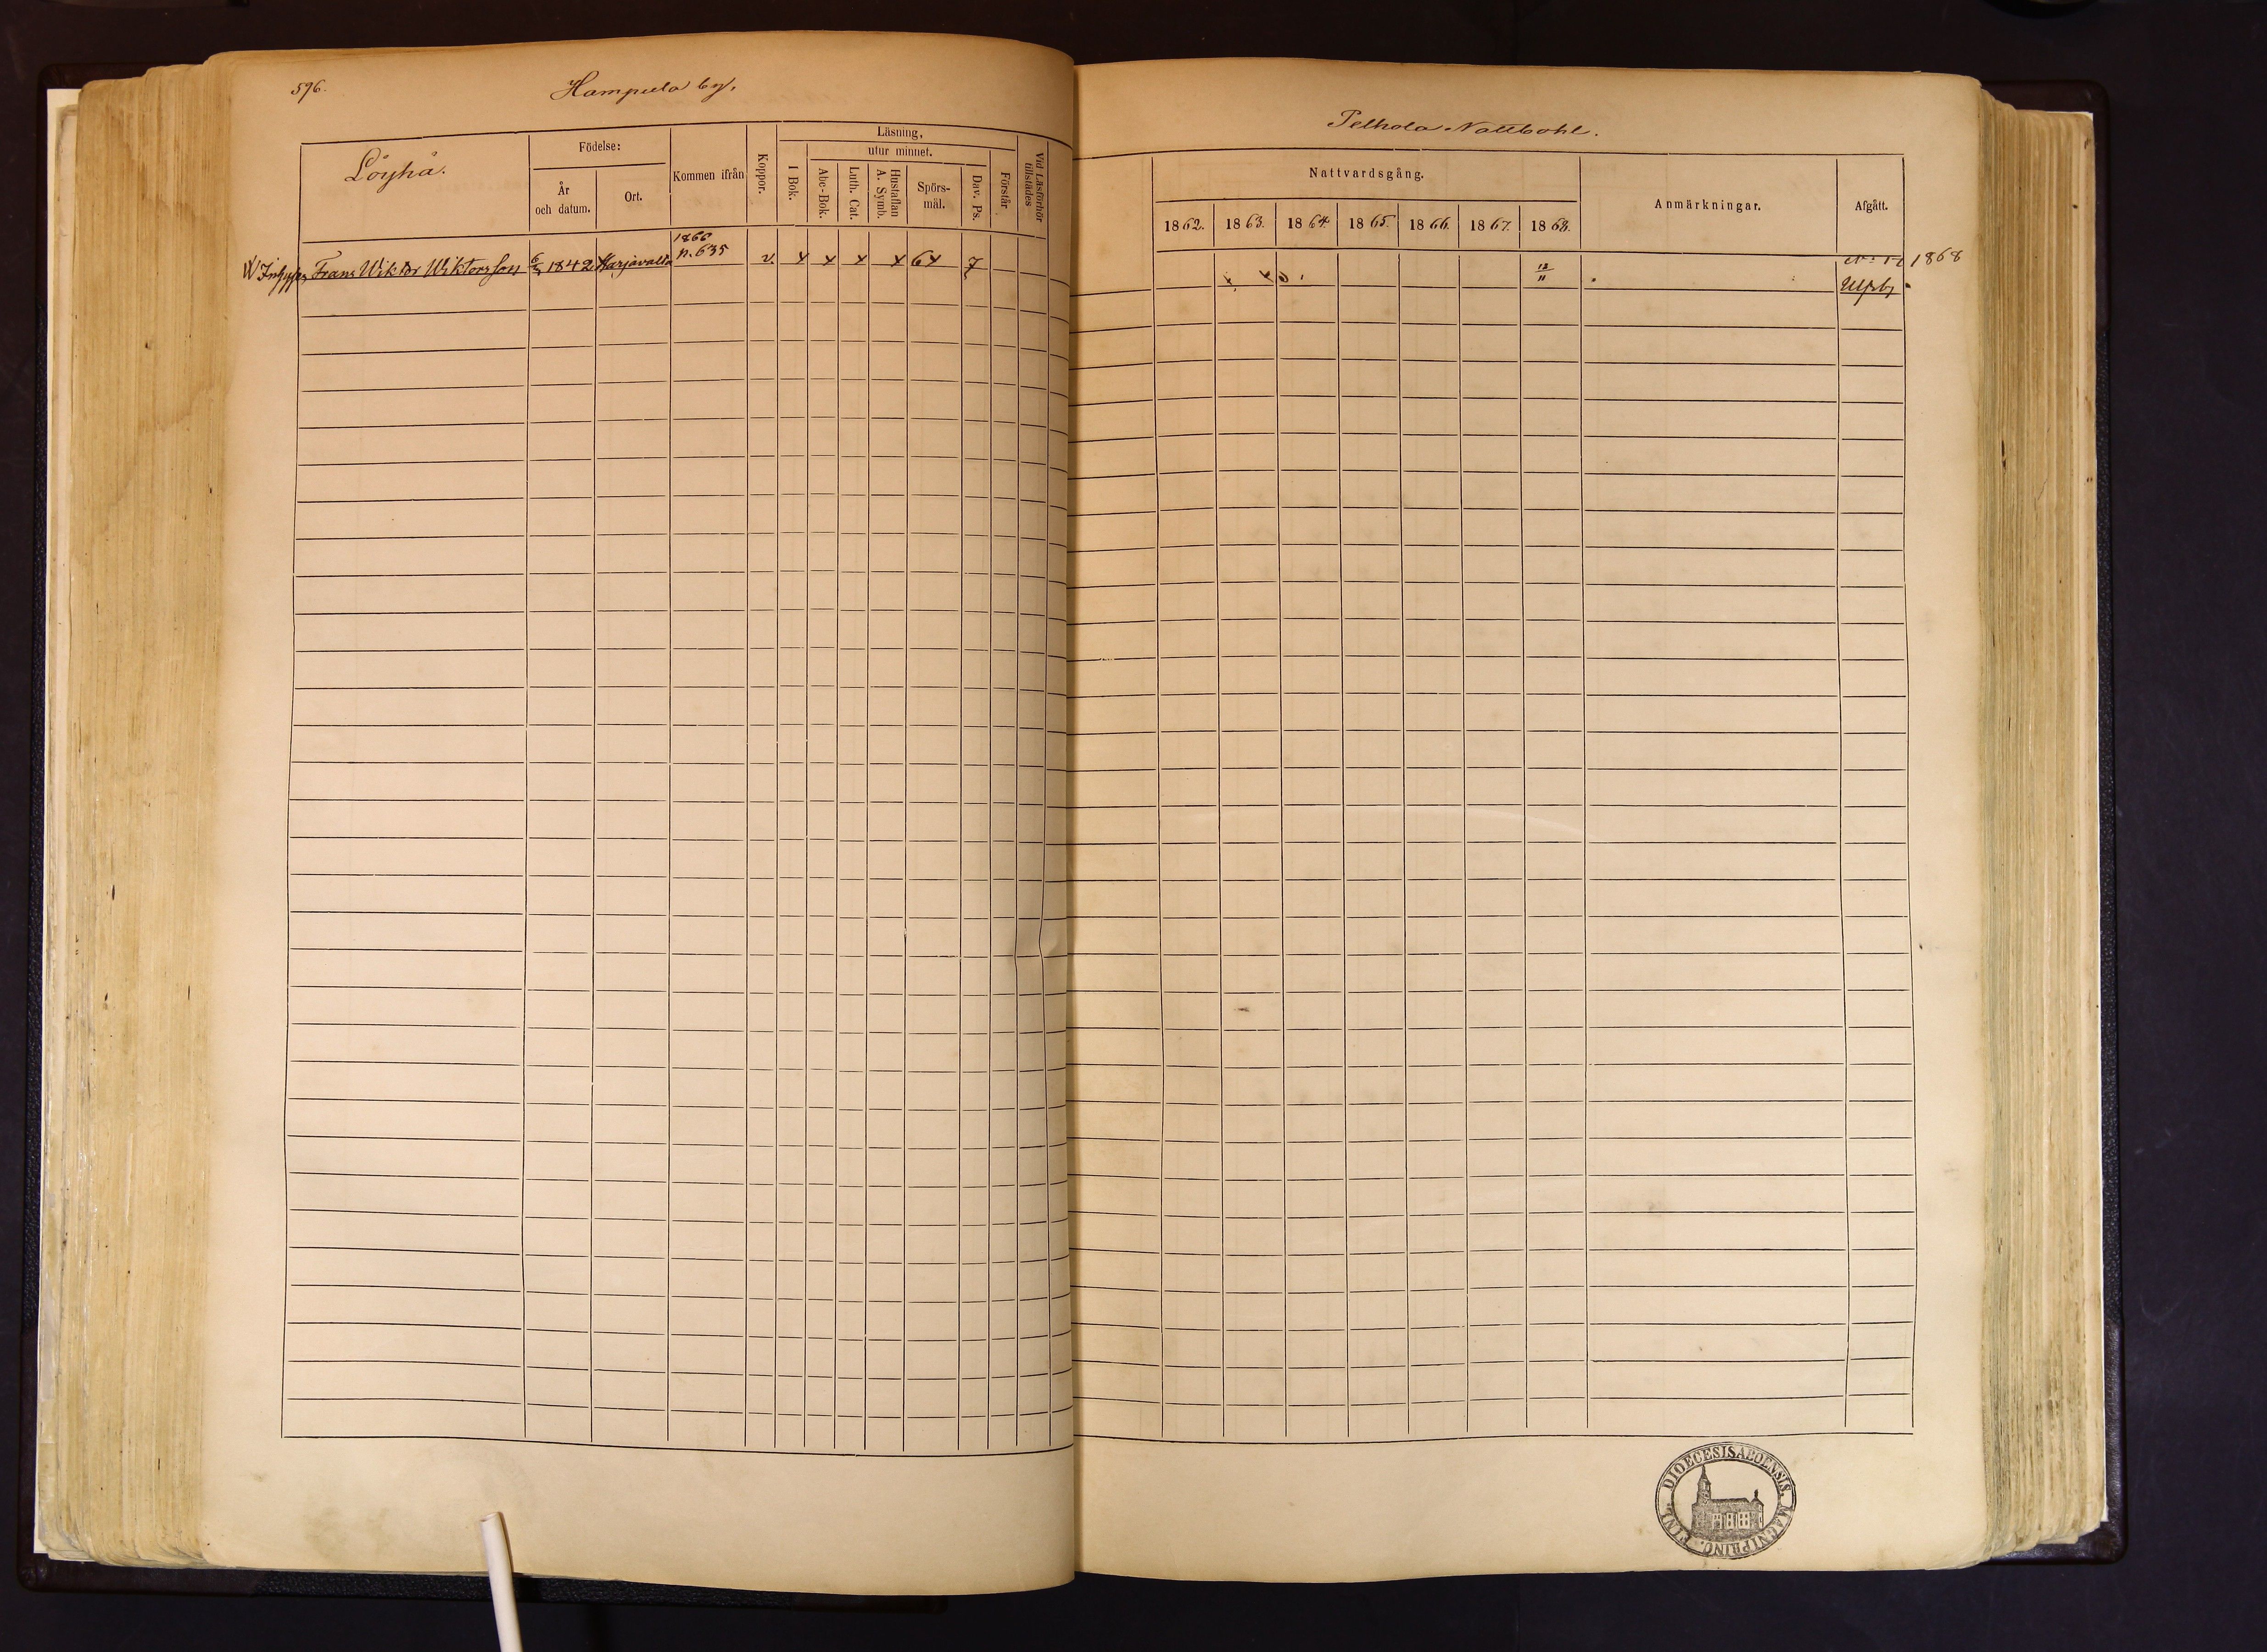 596.
Hampula by,
Löyhä.
Födelse:
År
och datum.
Ort.
Kommen ifrån
Koppor.
Läsning,
I Bok.
utur minnet.
Abc-Bok.
Luth. Cat.
Hustaflan
A. Symb.
Spörs-
mål.
Dav. Ps.
Förstår
Vid Läsförhör
tillstädes
Frans Wiktor Wiktorsson 1842 Harjavalta 1866 p. 635 v. x x x x 6x 7
Pelhola Nattbohl.
Nattvardsgång.
Anmärkningar.
Afgått.
1862. 1863. 1864. 1865. 1866. 1867. 1868.
12/11
1868
Ulfsby
DIOECESIS ABOENSIS. MAGNI PRINC. FINL.